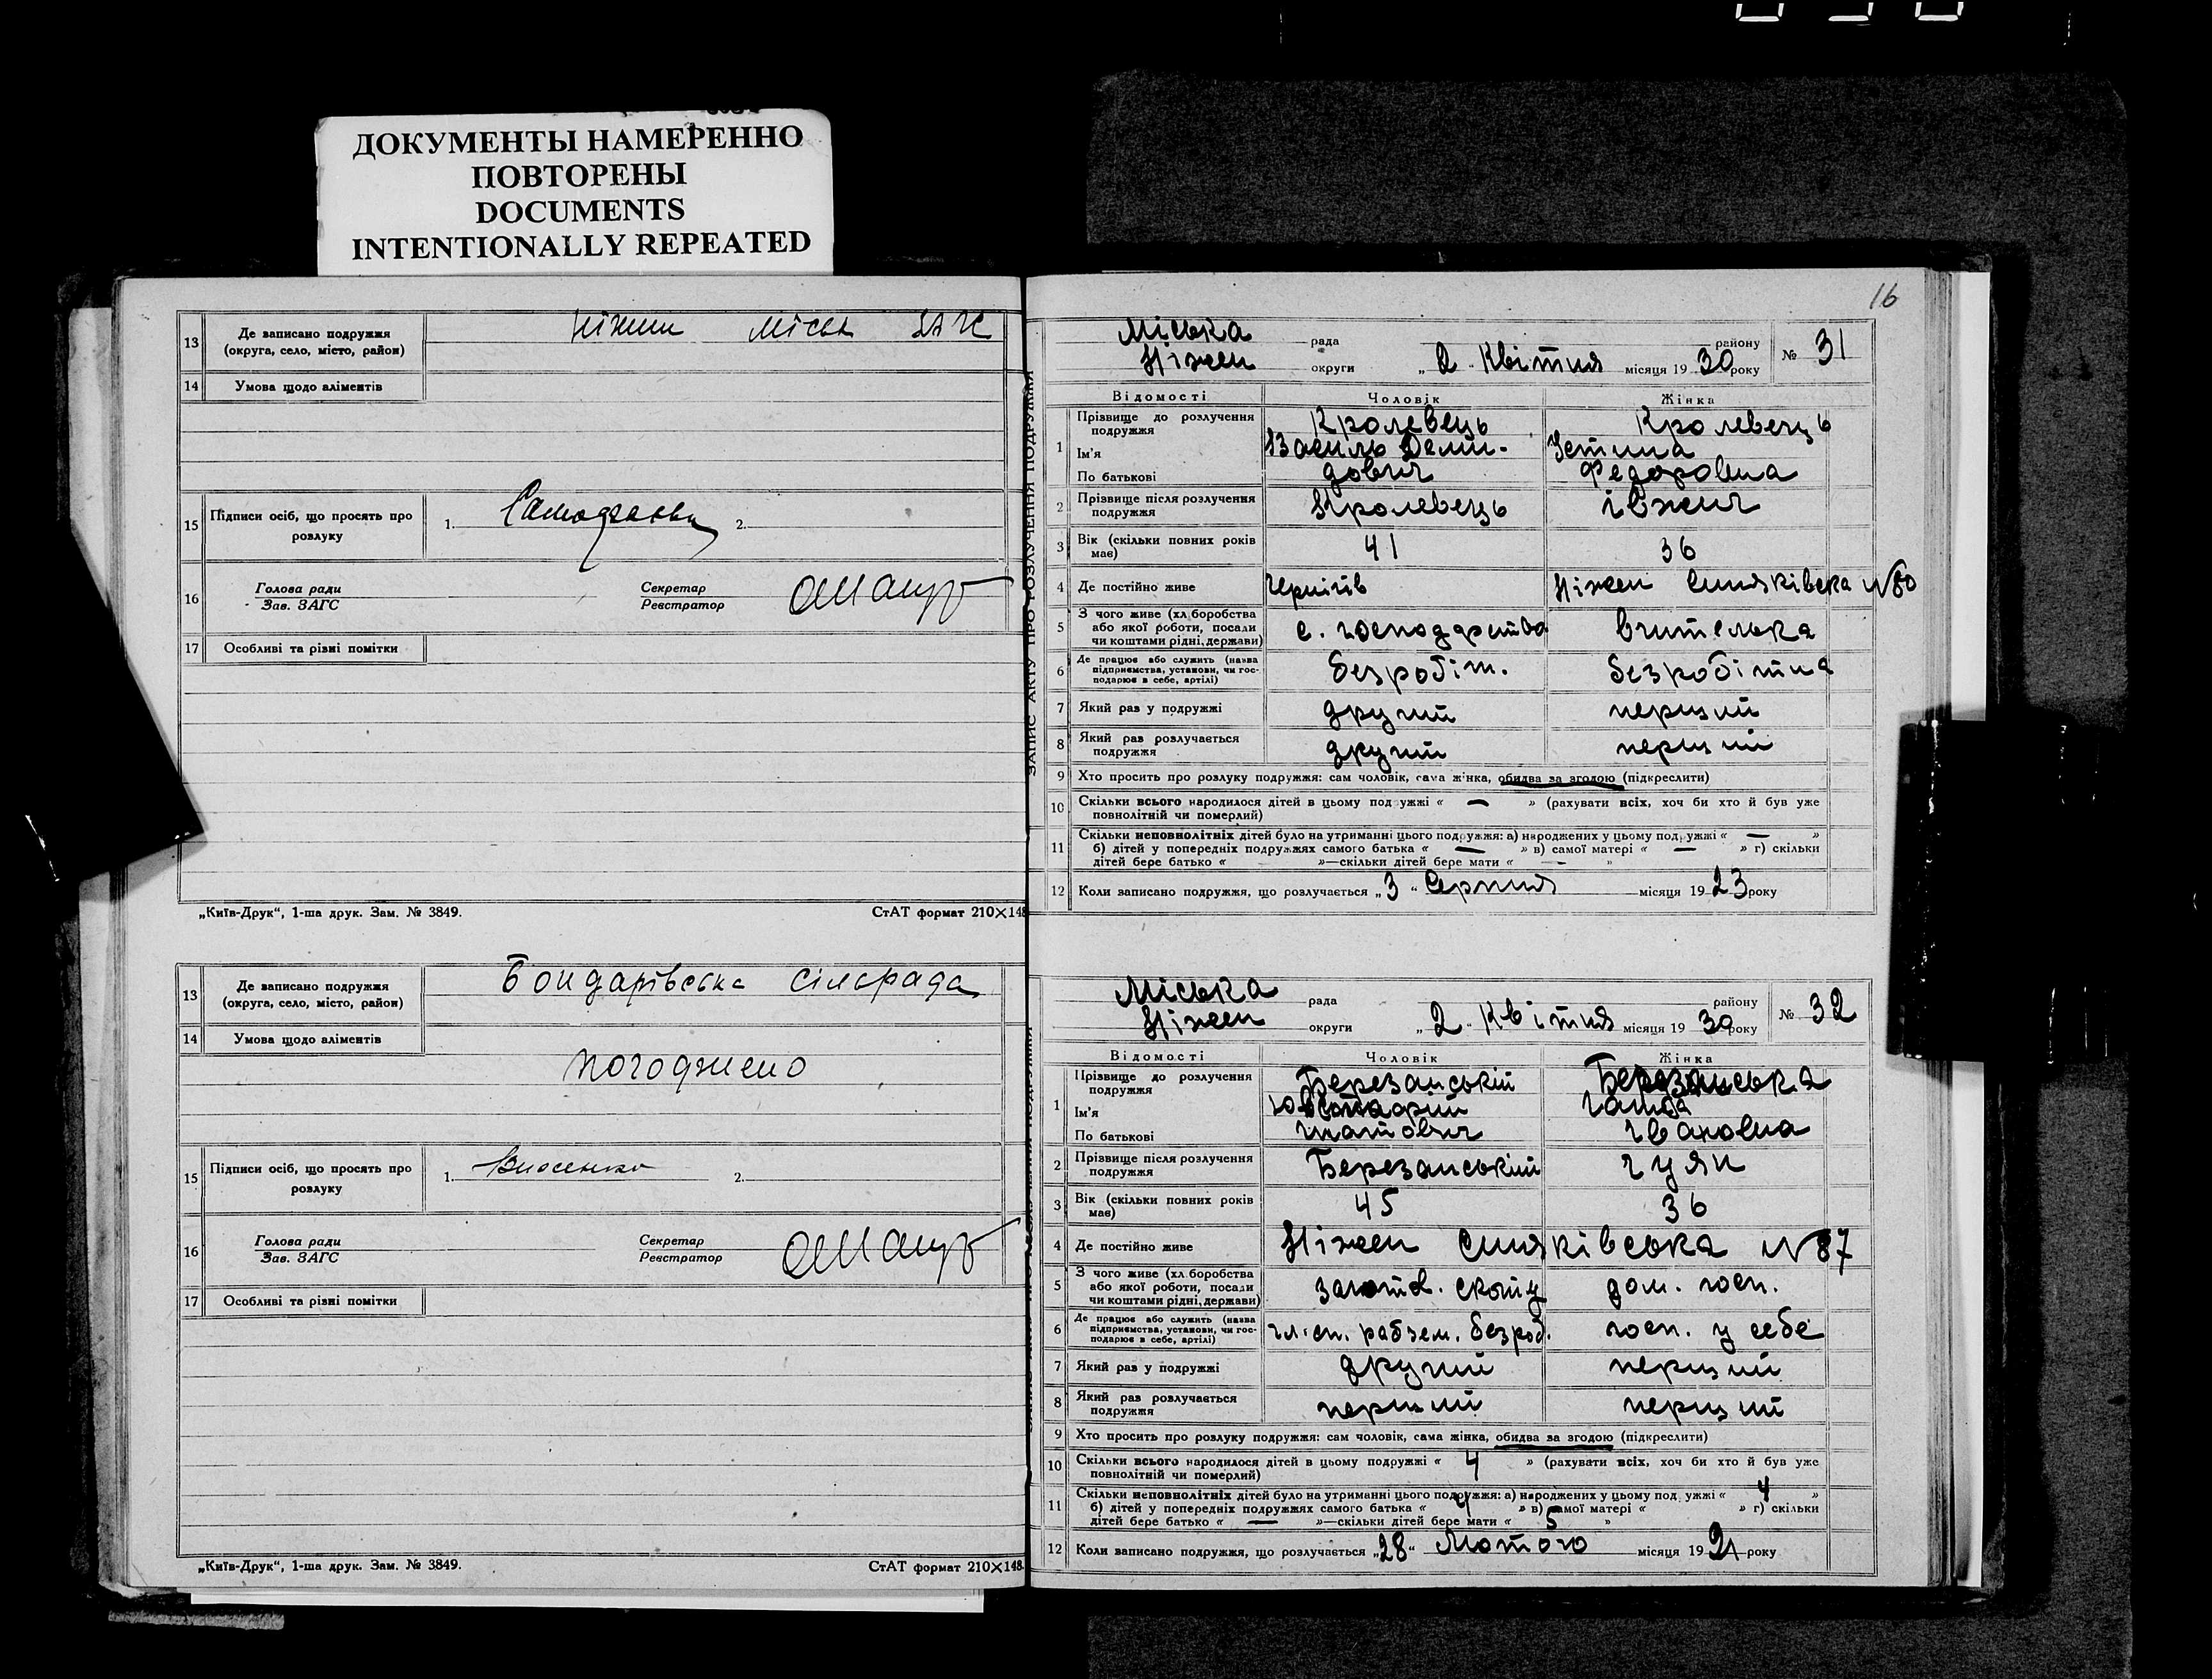 ДОКУМЕНТЫ НАМЕРЕННО
ПОВТОРЕНЫ
DOCUMENTS
INTENTIONALLY REPEATED
13 Де записано подружжя (округа, село, місто, район) Ніжин міськ ЗАГС
14 Умова щодо аліментів
15 Підписи осіб, що просять про розлуку 1. 2.
16 Голова ради Зав. ЗАГС Секретар Реєстратор
17 Особливі та різні помітки
„Київ-Друк“, 1-ша друк. Зам. № 3849. СтАТ формат 210×148
13 Де записано подружжя (округа, село, місто, район) Бондарівська сільрада
14 Умова щодо аліментів
погоджено
15 Підписи осіб, що просять про розлуку 1. 2.
16 Голова ради Зав. ЗАГС Секретар Реєстратор
17 Особливі та різні помітки
„Київ-Друк“, 1-ша друк. Зам. № 3849. СтАТ формат 210×148
ЗАПИС АКТУ ПРО РОЗЛУЧЕННЯ ПОДРУЖЖЯ
16
Міська рада району № 31
Ніжен округи „2“ Квітня місяця 1930 року
Відомості Чоловік Жінка
1 Прізвище до розлучення подружжя Кролевець Кролевець
Ім'я Василь Деми- Устина
По батькові дович Федоровна
2 Прізвище після розлучення подружжя Кролевець Івжич
3 Вік (скільки повних років має) 41 36
4 Де постійно живе Чернігів Ніжен Синяківска №80
5 З чого живе (хл.боробства або якої роботи, посади чи коштами рідні, держави) с. господарство вителька
6 Де працює або служить (назва підприємства, установи, чи господарює в себе, артілі) безробіт. безробітна
7 Який раз у подружжі другий перший
8 Який раз розлучається подружжя другий перший
9 Хто просить про розлуку подружжя: сам чоловік, сама жінка, обидва за згодою (підкреслити)
10 Скільки всього народилося дітей в цьому подружжі « — » (рахувати всіх, хоч би хто й був уже
повнолітній чи померлий)
11 Скільки неповнолітніх дітей було на утриманні цього подружжя: а) народжених у цьому подружжі « — »
б) дітей у попередніх подружжях самого батька « — » в) самої матері « — » г) скільки
дітей бере батько « »—скільки дітей бере мати « — »
12 Коли записано подружжя, що розлучається „3“ Серпня місяця 1923 року
Міська рада району № 32
Ніжен округи „2“ Квітня місяця 1930 року
Відомості Чоловік Жінка
1 Прізвище до розлучення подружжя Березанський Березанська
Ім'я
По батькові Гнатович Івановна
2 Прізвище після розлучення подружжя Березанський Гуян
3 Вік (скільки повних років має) 45 36
4 Де постійно живе Ніжен Синяківська №87
5 З чого живе (хл.боробства або якої роботи, посади чи коштами рідні, держави) заготов. скоту дом. госп.
6 Де працює або служить (назва підприємства, установи, чи господарює в себе, артілі) чл. сп. рабзем. безроб. госп. у себе
7 Який раз у подружжі другий перший
8 Який раз розлучається подружжя перший перший
9 Хто просить про розлуку подружжя: сам чоловік, сама жінка, обидва за згодою (підкреслити)
10 Скільки всього народилося дітей в цьому подружжі « 4 » (рахувати всіх, хоч би хто й був уже
повнолітній чи померлий)
11 Скільки неповнолітніх дітей було на утриманні цього подружжя: а) народжених у цьому подружжі « 4 »
б) дітей у попередніх подружжях самого батька « » в) самої матері « » г) скільки
дітей бере батько « — »—скільки дітей бере мати « 5 »
12 Коли записано подружжя, що розлучається „28“ Лютого місяця 1921 року